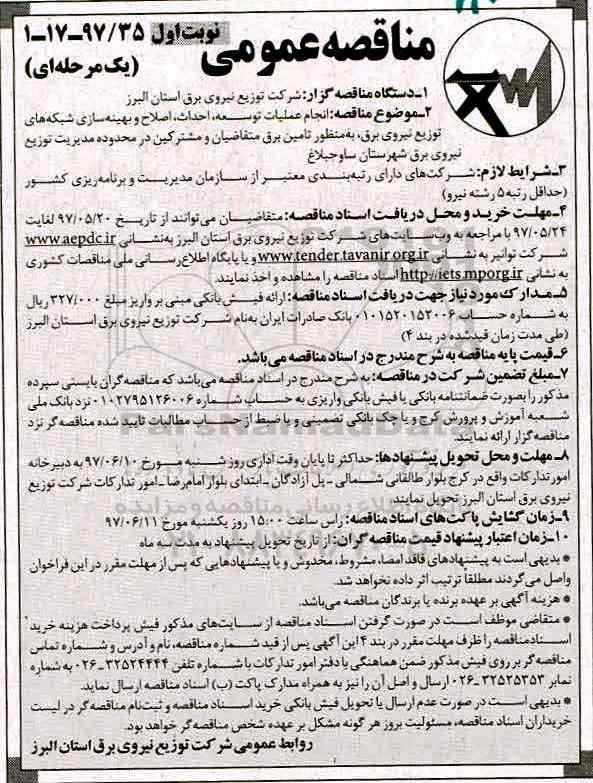 مناقصه عمومی
نوبت اول ۹۷/۳۵-۱۷-۱
(یک مرحله‌ای)
۱ـ دستگاه مناقصه گزار: شرکت توزیع نیروی برق استان البرز
۲ـ موضوع مناقصه: انجام عملیات توسعه، احداث، اصلاح و بهینه‌سازی شبکه‌های
توزیع نیروی برق، به‌منظور تامین برق متقاضیان و مشترکین در محدوده مدیریت توزیع
نیروی برق شهرستان ساوجبلاغ
۳ـ شرایط لازم: شرکت‌های دارای رتبه‌بندی معتبر از سازمان مدیریت و برنامه‌ریزی کشور
(حداقل رتبه ۵ رشته نیرو)
۴ـ مهلت خرید و محل دریافت اسناد مناقصه: متقاضیان می‌توانند از تاریخ ۹۷/۰۵/۲۰ لغایت
۹۷/۰۵/۲۴ با مراجعه به وب‌سایت‌های شرکت توزیع نیروی برق استان البرز به‌نشانی www.aepdc.ir
شرکت توانیر به نشانی www.tender.tavanir.org.ir و یا پایگاه اطلاع‌رسانی ملی مناقصات کشوری
به نشانی http://iets.mporg.ir اسناد مناقصه را مشاهده و اخذ نمایند.
۵ـ مدارک مورد نیاز جهت دریافت اسناد مناقصه: ارائه فیش بانکی مبنی بر واریز مبلغ ۳۲۷/۰۰۰ ریال
به شماره حساب ۰۱۰۱۵۲۰۱۵۲۰۰۶ بانک صادرات ایران به‌نام شرکت توزیع نیروی برق استان البرز
(طی مدت زمان قیدشده در بند ۴)
۶ـ قیمت پایه مناقصه به شرح مندرج در اسناد مناقصه می‌باشد.
۷ـ مبلغ تضمین شرکت در مناقصه: به شرح مندرج در اسناد مناقصه می‌باشد که مناقصه‌گران بایستی سپرده
مذکور را بصورت ضمانتنامه بانکی یا فیش بانکی واریزی به حساب شماره ۰۱۰۲۷۹۵۱۳۶۰۰۶ نزد بانک ملی
شعبه آموزش و پرورش کرج و یا چک بانکی تضمینی و یا ضبط از حساب مطالبات تایید شده مناقصه‌گر نزد
مناقصه‌گزار ارائه نمایند.
۸ـ مهلت و محل تحویل پیشنهادها: حداکثر تا پایان وقت اداری روز شنبه مورخ ۹۷/۰۶/۱۰ به دبیرخانه
امور تدارکات واقع در کرج بلوار طالقانی شمالی ـ پل آزادگان ـ ابتدای بلوار امام‌رضا ـ امور تدارکات شرکت توزیع
نیروی برق استان البرز تحویل نمایند.
۹ـ زمان گشایش پاکت‌های اسناد مناقصه: راس ساعت ۱۵:۰۰ روز یکشنبه مورخ ۹۷/۰۶/۱۱
۱۰ـ زمان اعتبار پیشنهاد قیمت مناقصه گران: از تاریخ تحویل پیشنهاد به مدت سه ماه
* بدیهی است به پیشنهادهای فاقد امضا، مشروط، مخدوش و یا پیشنهادهایی که پس از مهلت مقرر در این فراخوان
واصل می‌گردند مطلقاً ترتیب اثر داده نخواهد شد.
* هزینه آگهی بر عهده برنده یا برندگان مناقصه می‌باشد.
* متقاضی موظف است در صورت گرفتن اسناد مناقصه از سایت‌های مذکور فیش پرداخت هزینه خرید
اسناد مناقصه را ظرف مهلت مقرر در بند ۴ این آگهی پس از قید شماره مناقصه، نام و آدرس و شماره تماس
مناقصه‌گر بر روی فیش مذکور ضمن هماهنگی با دفتر امور تدارکات با شماره تلفن ۳۲۵۲۴۴۴۴-۰۲۶ به شماره
نمابر ۳۲۵۲۵۳۵۳-۰۲۶ ارسال و اصل آن را نیز به همراه مدارک پاکت (ب) اسناد مناقصه ارسال نماید.
* بدیهی است در صورت عدم ارسال یا تحویل فیش بانکی خرید اسناد مناقصه و ثبت‌نام مناقصه‌گر در لیست
خریداران اسناد مناقصه، مسئولیت بروز هر گونه مشکل بر عهده شخص مناقصه‌گر خواهد بود.
روابط عمومی شرکت توزیع نیروی برق استان البرز